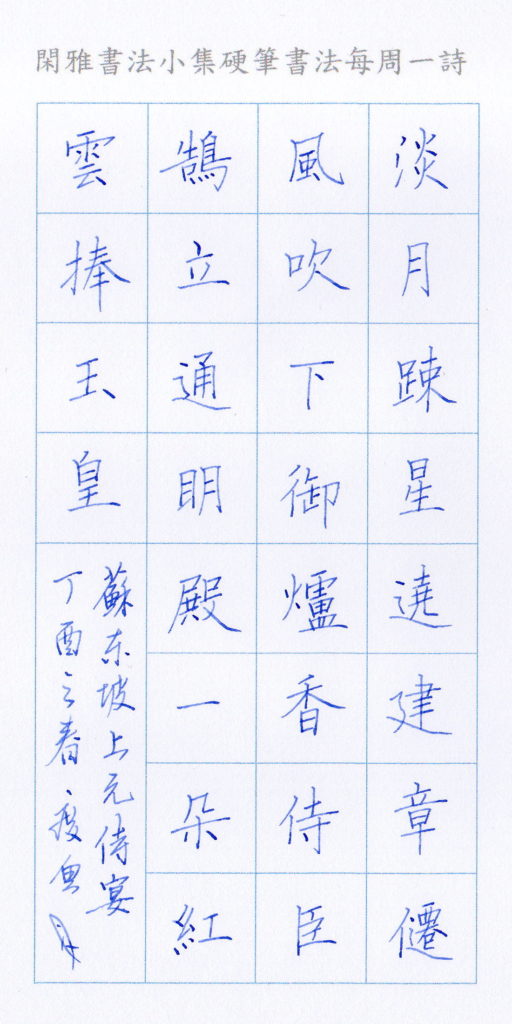 閑雅書法小集硬筆書法每周一詩
淡月踈星遶建章僊
風吹下御爐香侍臣
鵠立通明殿一朵紅
雲捧玉皇
蘇东坡上元侍宴
丁酉之春、瘦魚